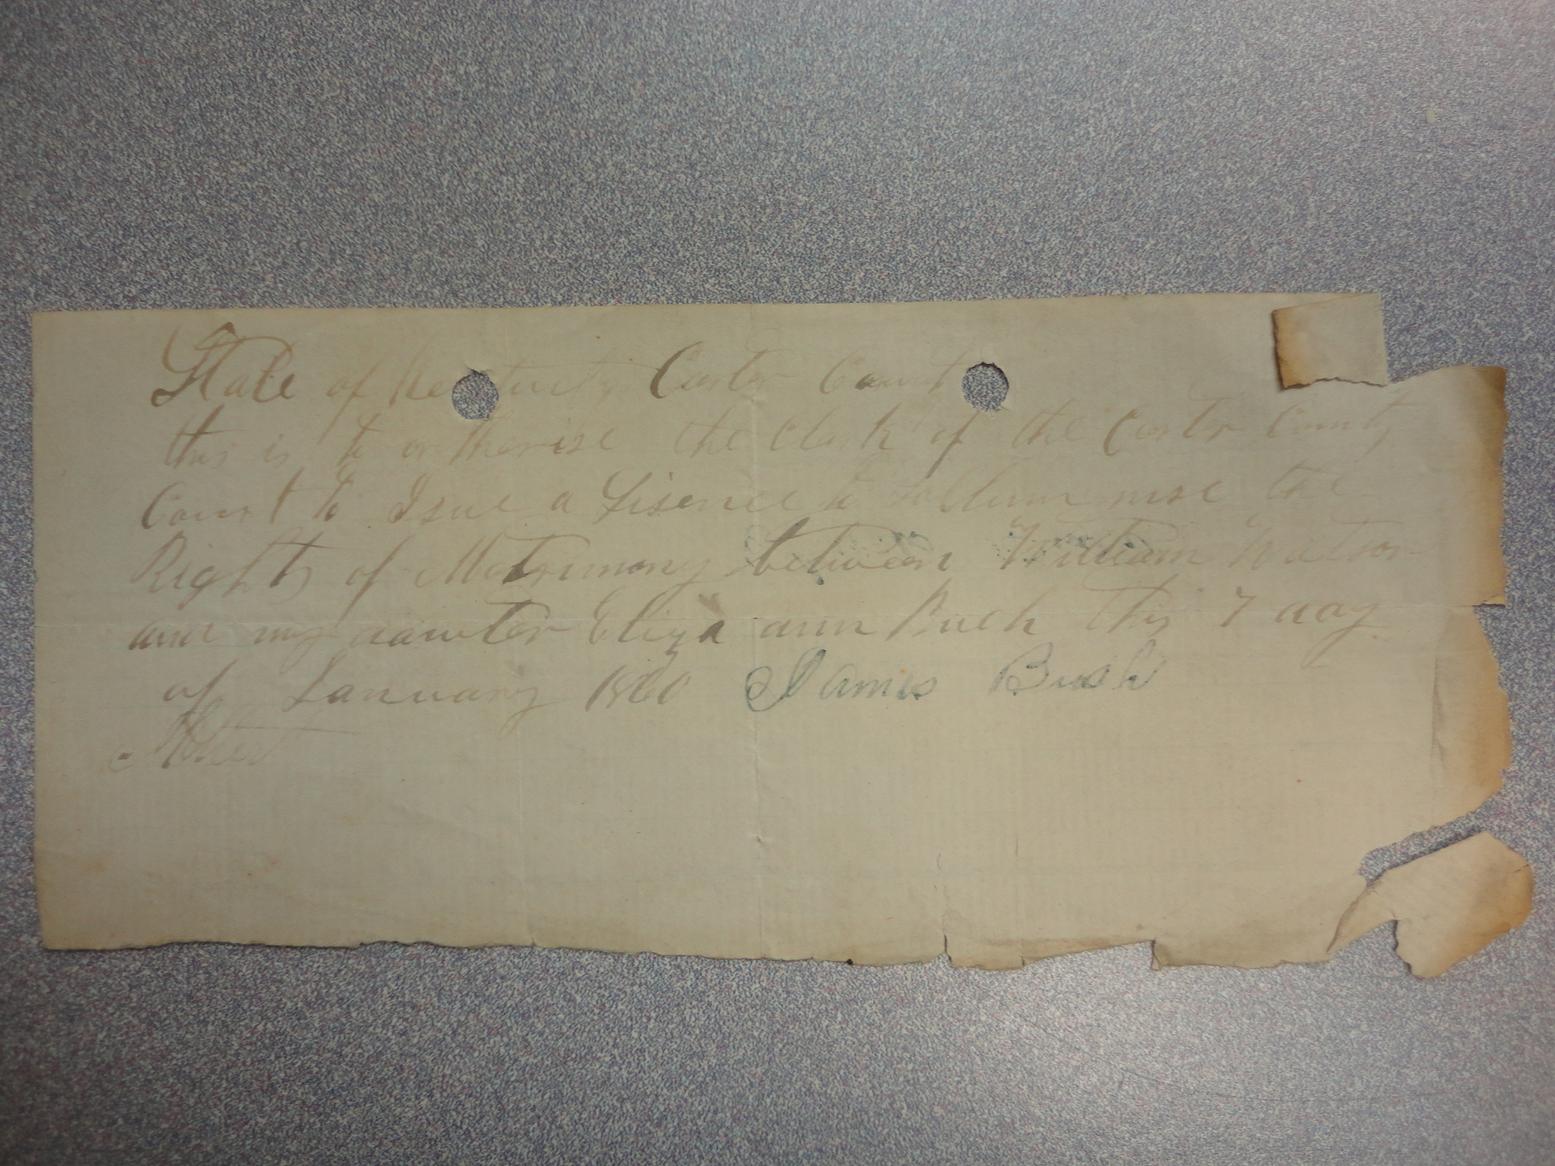 State of Kentucky Carter County
this is to ortherise the Clerk of the Carter County
Court to Isue a Lisence to Sollumnise the
Rights of Matrimony between William Watson
and my dawter Eliza ann Bush this 7 day
of January 1860 James Bush
Attest